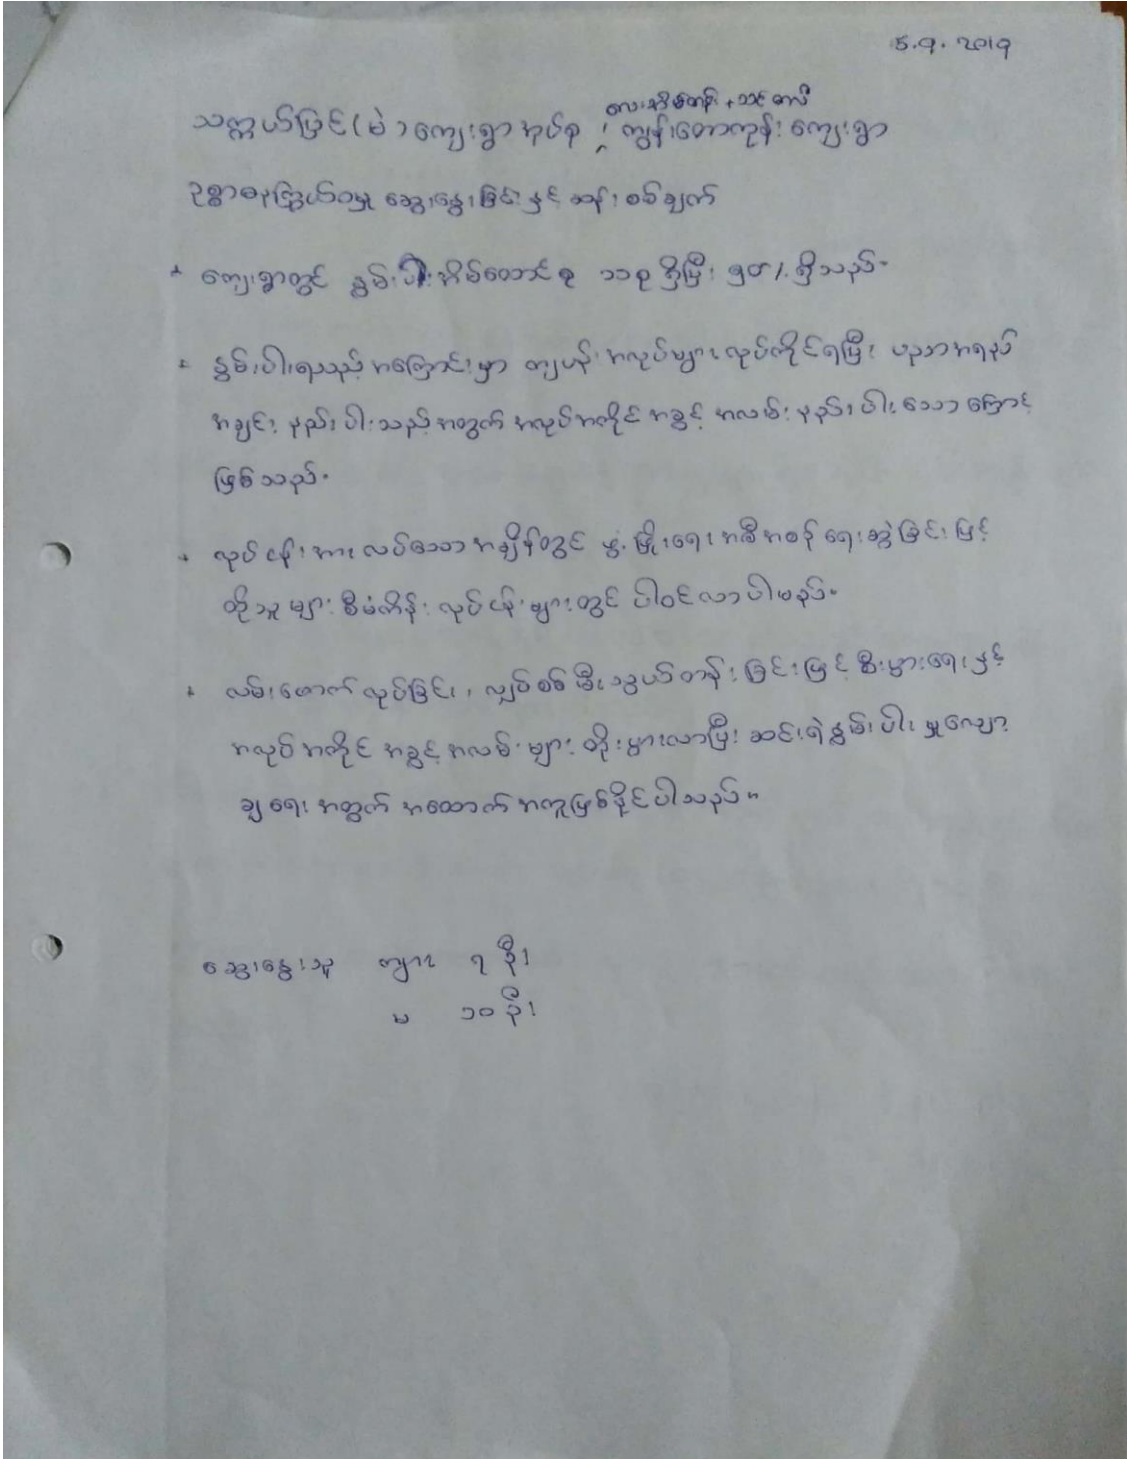 ၅.၇.၂၀၁၇
လေးအိမ်တန်း + သင်္ဘောလီ
သက္ကယ်ပြင် (မဲ) ကျေးရွာအုပ်စု ၊ ကျွန်းတောကုန်း ကျေးရွာ
ဥစ္စာဓနကြွယ်ဝမှု ဆွေးနွေးခြင်းနှင့် ဆန်းစစ်ချက်
* ကျေးရွာတွင် နွမ်းပါးအိမ်ထောင်စု ၁၁စု ရှိပြီး ၅၀% ရှိသည်။
* နွမ်းပါးရသည့် အကြောင်းမှာ ကျပန်းအလုပ်များ လုပ်ကိုင်ရပြီး ပညာအရည်
အချင်း နည်းပါးသည့်အတွက် အလုပ်အကိုင် အခွင့်အလမ်း နည်းပါးသောကြောင့်
ဖြစ်သည်။
* လုပ်ငန်းအားလပ်သော အချိန်တွင် ဖွံ့ဖြိုးရေး အစီအစဉ် ရေးဆွဲခြင်းဖြင့်
ထိုသူများ စီမံကိန်း လုပ်ငန်းများတွင် ပါဝင်လာပါမည်။
* လမ်းဖောက်လုပ်ခြင်း ၊ လျှပ်စစ်မီးသွယ်တန်းခြင်းဖြင့် စီးပွားရေးနှင့်
အလုပ်အကိုင် အခွင့်အလမ်းများ တိုးပွားလာပြီး ဆင်းရဲနွမ်းပါးမှုလျော့
ချရေးအတွက် အထောက်အကူဖြစ်နိုင်ပါသည်။
ဆွေးနွေးသူ ကျား ၇ ဦး
မ ၁၀ ဦး